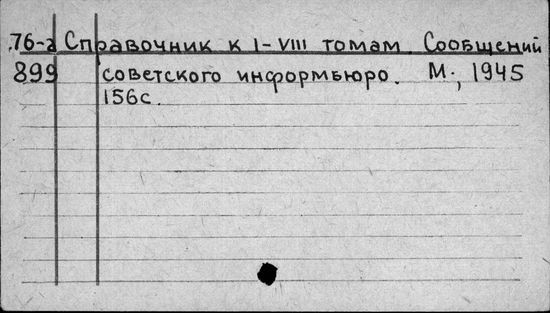 76-а Справочник к I-VIII томам Сообщений
899 советского информбюро. М., 1945
156с.